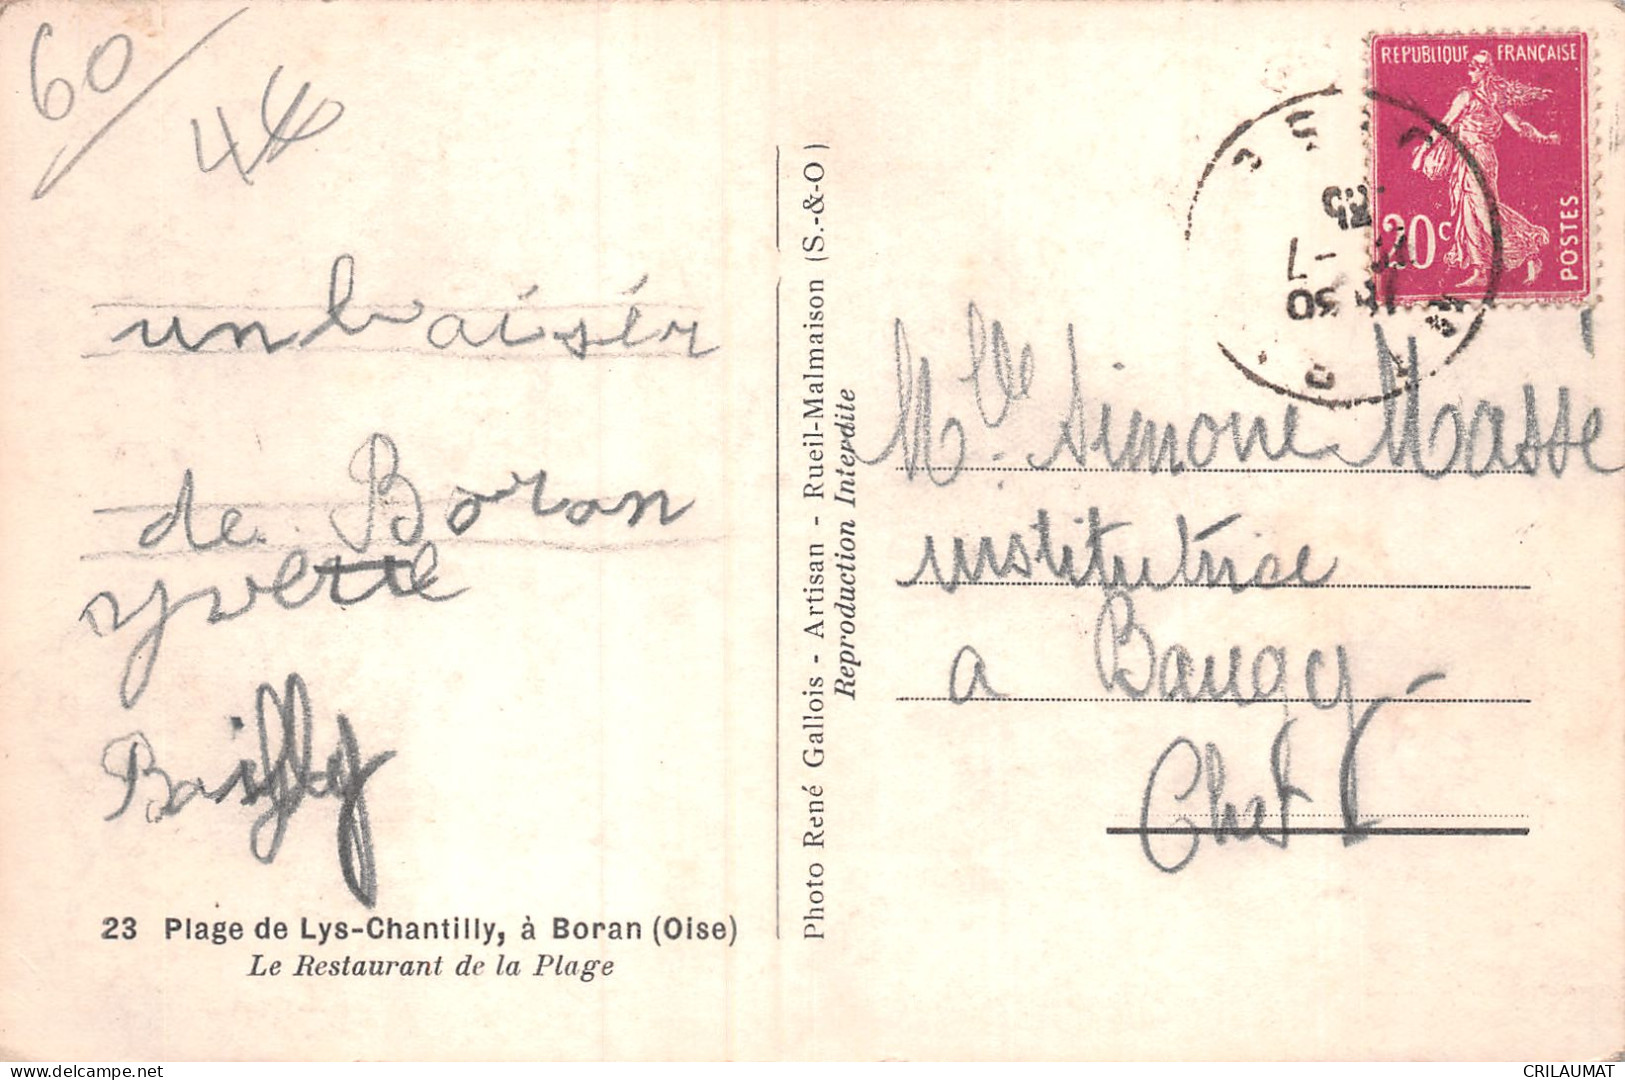 60
44
un baisér
de Boran
yvette
Bailly
23 Plage de Lys-Chantilly, à Boran (Oise)
Le Restaurant de la Plage
Photo René Gallois - Artisan - Rueil-Malmaison (S.-&-O)
Reproduction Interdite
REPUBLIQUE FRANÇAISE
20c
POSTES
Mlle. Simone Massé
institutrice
a Baugy
Cher
CRILAUMAT